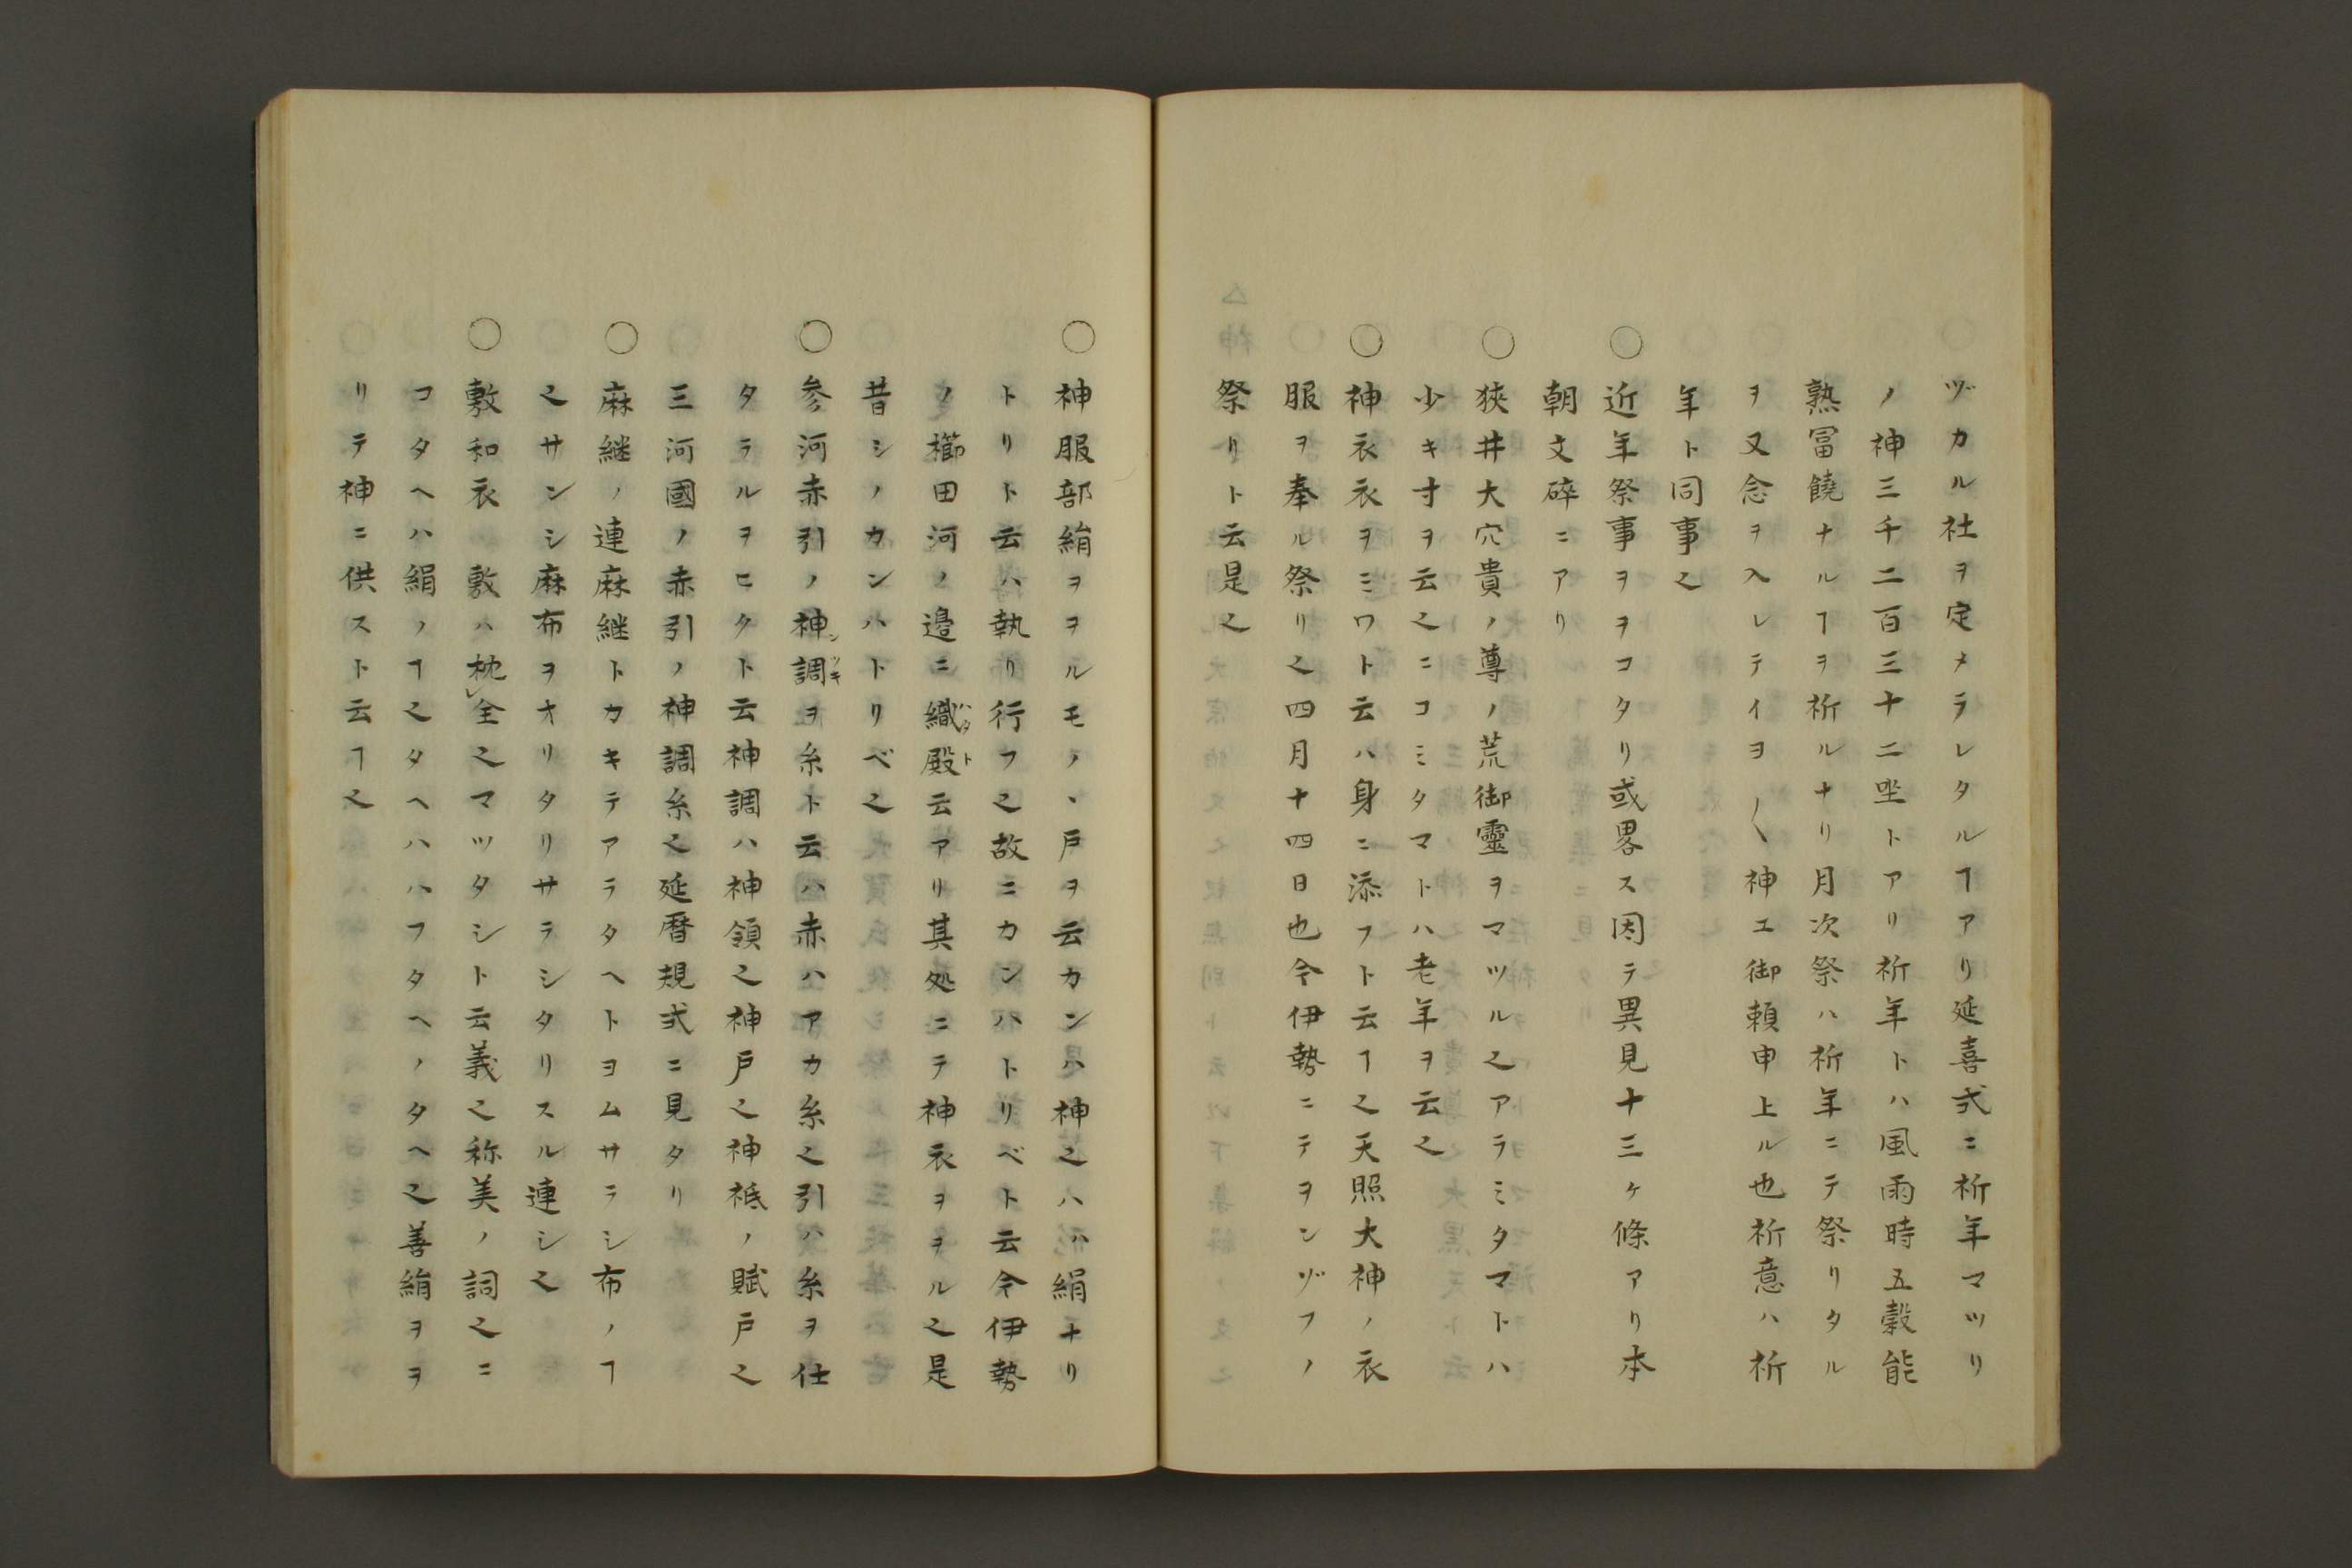 ヅカル社ヲ定メラレタルヿアリ延喜式ニ祈年マツリ
ノ神三千二百三十二坐トアリ祈年トハ風雨時五穀能
熟冨饒ナルヿヲ祈ルナリ月次祭ハ祈年ニテ祭リタル
ヲ又念ヲ入レテイヨ〱神エ御頼申上ル也祈意ハ祈
年ト同事之
○近年祭事ヲヲコタリ或畧ス因テ異見十三ヶ條アリ本
朝文碎ニアリ
○狹井大穴貴ノ尊ノ荒御靈ヲマツル之アラミタマトハ
少キ寸ヲ云之ニコミタマトハ老年ヲ云之
○神衣衣ヲミワト云ハ身ニ添フト云ヿ之天照大神ノ衣
服ヲ奉ル祭リ之四月十四日也今伊勢ニテヲンゾフノ
祭リト云是之
○神服部絹ヲヲルモノヽ戸ヲ云カンハ神之ハハ絹ナリ
トリト云ハ執リ行フ之故ニカンハトリベト云今伊勢
ノ櫛田河ノ邉ニ織殿云アリ其処ニテ神衣ヲヲル之是
ハタト
昔シノカンハトリベ之
○参河赤引ノ神調ヲ糸ト云ハ赤ハアカ糸之引ハ糸ヲ仕
シツキ
タラルヲヒクト云神調ハ神領之神戸之神祗ノ賦戸之
三河國ノ赤引ノ神調糸之延暦規式ニ見タリ
○麻継ノ連麻継トカキテアラタヘトヨムサラシ布ノヿ
之サンシ麻布ヲオリタリサラシタリスル連シ之
○敷和衣 敷ハ枕全之マツタシト云義之称美ノ詞之ニ
コタヘハ絹ノヿ之タヘハハフタヘノタヘ之善絹ヲヲ
リテ神ニ供ストト云ヿ之